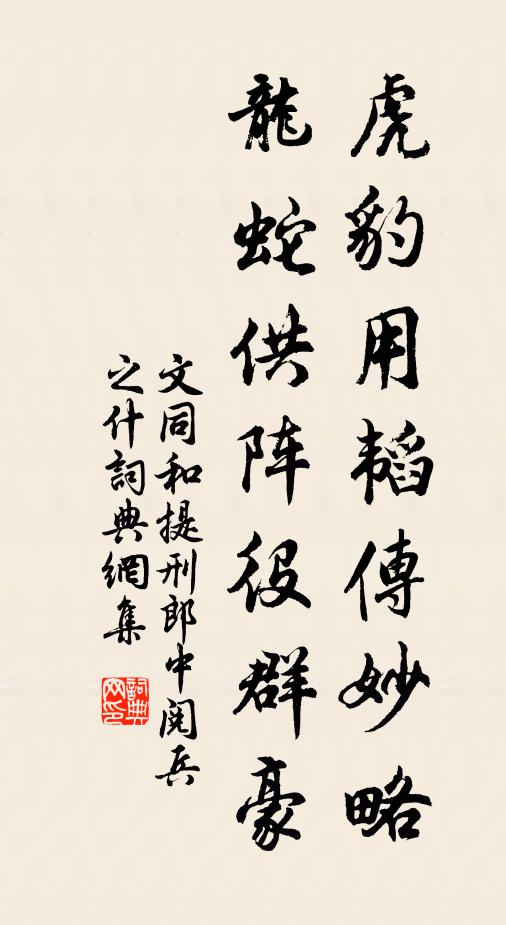 虎豹用韬傳妙略
龍蛇供阵役群豪
文同和提刑郎中阅兵
之什詞典網集
詞典网印